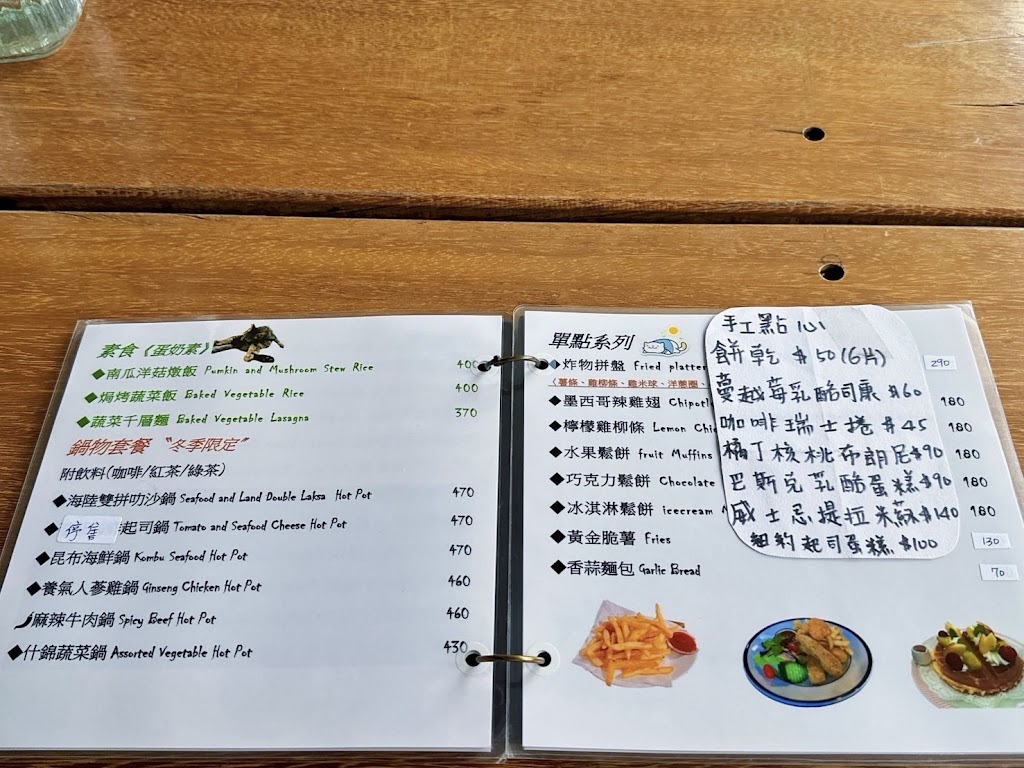 素食《蛋奶素》
◆南瓜洋菇燉飯 Pumkin and Mushroom Stew Rice 400
◆焗烤蔬菜飯 Baked Vegetable Rice 400
◆蔬菜千層麵 Baked Vegetable Lasagna 370
鍋物套餐 〝冬季限定〞
附飲料(咖啡/紅茶/綠茶)
◆海陸雙拼叻沙鍋 Seafood and Land Double Laksa Hot Pot 470
◆停售 起司鍋 Tomato and Seafood Cheese Hot Pot 470
◆昆布海鮮鍋 Kombu Seafood Hot Pot 470
◆養氣人蔘雞鍋 Ginseng Chicken Hot Pot 460
麻辣牛肉鍋 Spicy Beef Hot Pot 460
◆什錦蔬菜鍋 Assorted Vegetable Hot Pot 430
單點系列
◆炸物拼盤 Fried platter 290
(薯條、雞柳條、雞米球、洋蔥圈、
◆墨西哥辣雞翅 180
◆檸檬雞柳條 Lemon 180
◆水果鬆餅 fruit Muffins 180
◆巧克力鬆餅 Chocolate 180
◆冰淇淋鬆餅 icecream 180
◆黃金脆薯 Fries 130
◆香蒜麵包 Garlic Bread 70
手工點心
餅乾 $50(6片)
蔓越莓乳酪司康 $60
咖啡瑞士捲 $45
橘丁核桃布朗尼$90
巴斯克乳酪蛋糕$90
威士忌提拉米蘇$140
紐約起司蛋糕$100